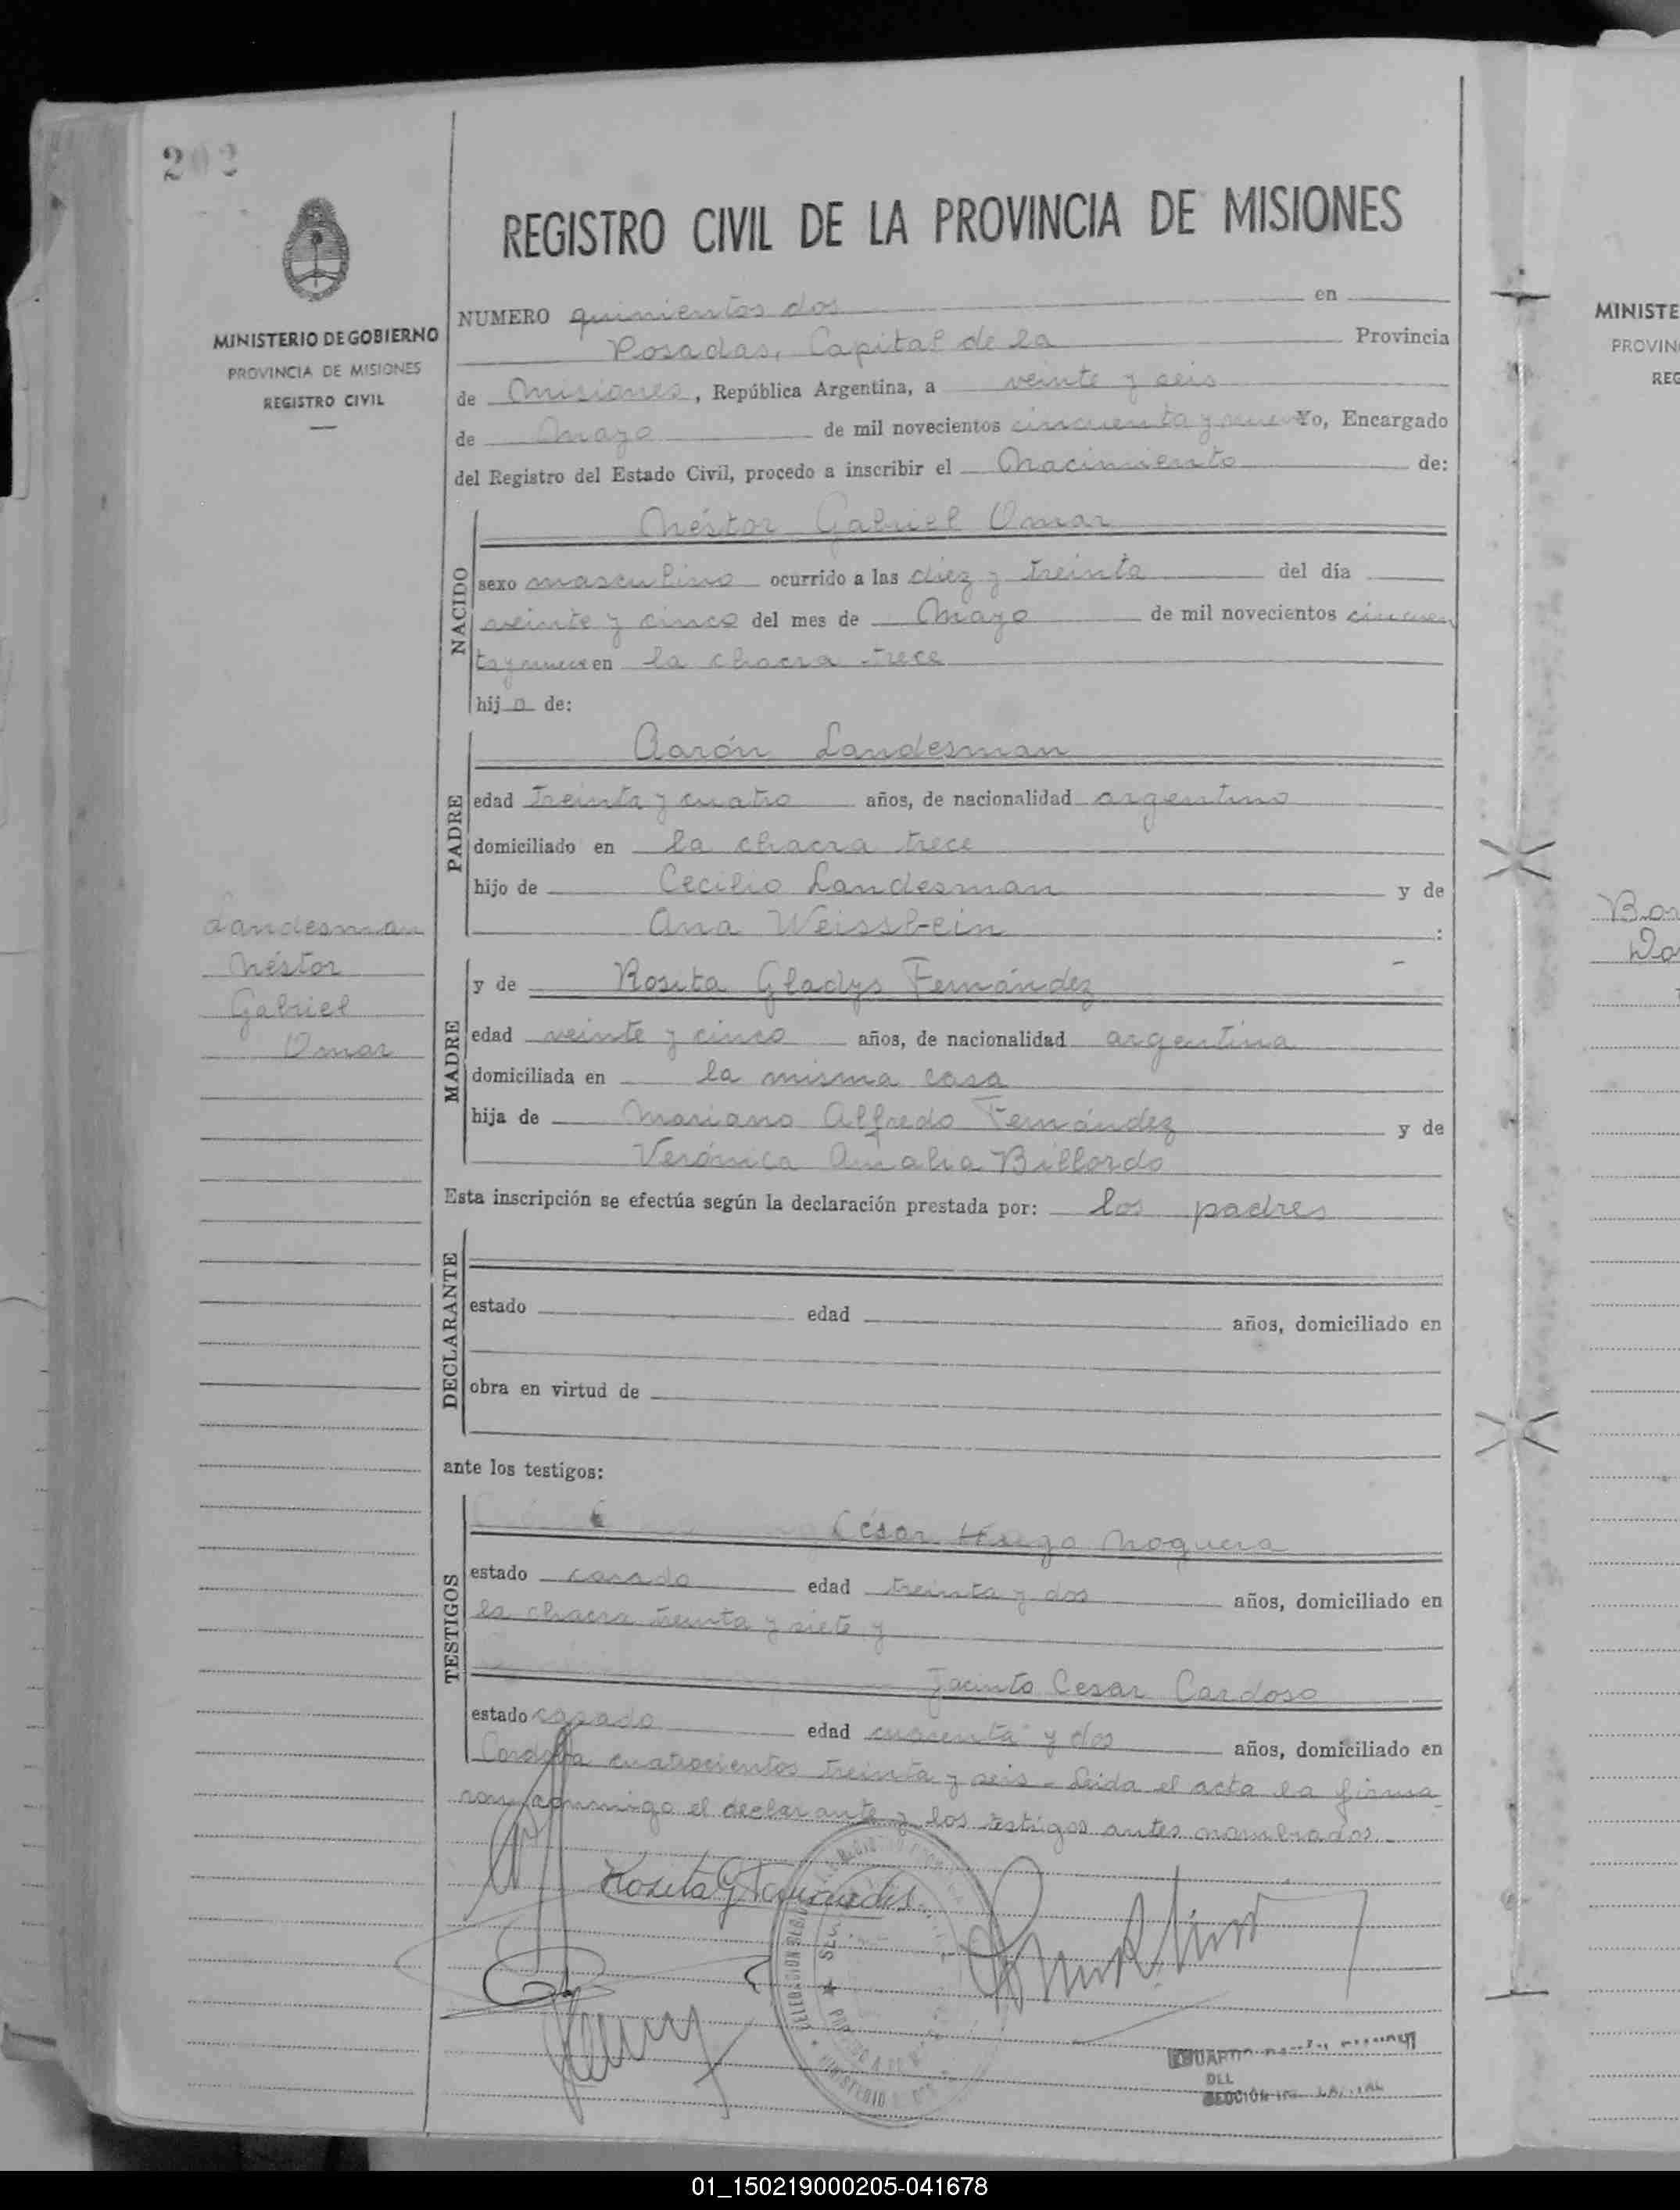 202
MINISTERIO DE GOBIERNO
PROVINCIA DE MISIONES
REGISTRO CIVIL
Landesman
Néstor
Gabriel
Omar
REGISTRO CIVIL DE LA PROVINCIA DE MISIONES
NUMERO quinientos dos en
Posadas, Capital de la Provincia
de Misiones, República Argentina, a veinte y seis
de Mayo de mil novecientos cincuenta y nueve Yo, Encargado
del Registro del Estado Civil, procedo a inscribir el Nacimiento de:
NACIDO
Néstor Gabriel Omar
sexo masculino ocurrido a las diez y treinta del día
veinte y cinco del mes de Mayo de mil novecientos cincuen
ta y nueve en la chacra trece
hijo de:
PADRE
Aarón Landesman
edad treinta y cuatro años, de nacionalidad argentino
domiciliado en la chacra trece
hijo de Cecilio Landesman y de
Ana Weissbein :
MADRE
y de Rosita Gladys Fernández
edad veinte y cinco años, de nacionalidad argentina
domiciliada en la misma casa
hija de Mariano Alfredo Fernández y de
Verónica Amalia Billordo
Esta inscripción se efectúa según la declaración prestada por: los padres
DECLARANTE
estado edad años, domiciliado en
obra en virtud de
ante los testigos:
TESTIGOS
César Hugo Noguera
estado casado edad treinta y dos años, domiciliado en
la chacra treinta y siete y
Jacinto Cesar Cardoso
estado casado edad cuarenta y dos años, domiciliado en
Cordoba cuatrocientos treinta y seis - Leida el acta la firma
ron conmigo el declarante y los testigos antes nombrados
Rosita G Fernández
MINISTE
PROVIN
REG
Bar
01_150219000205-041678